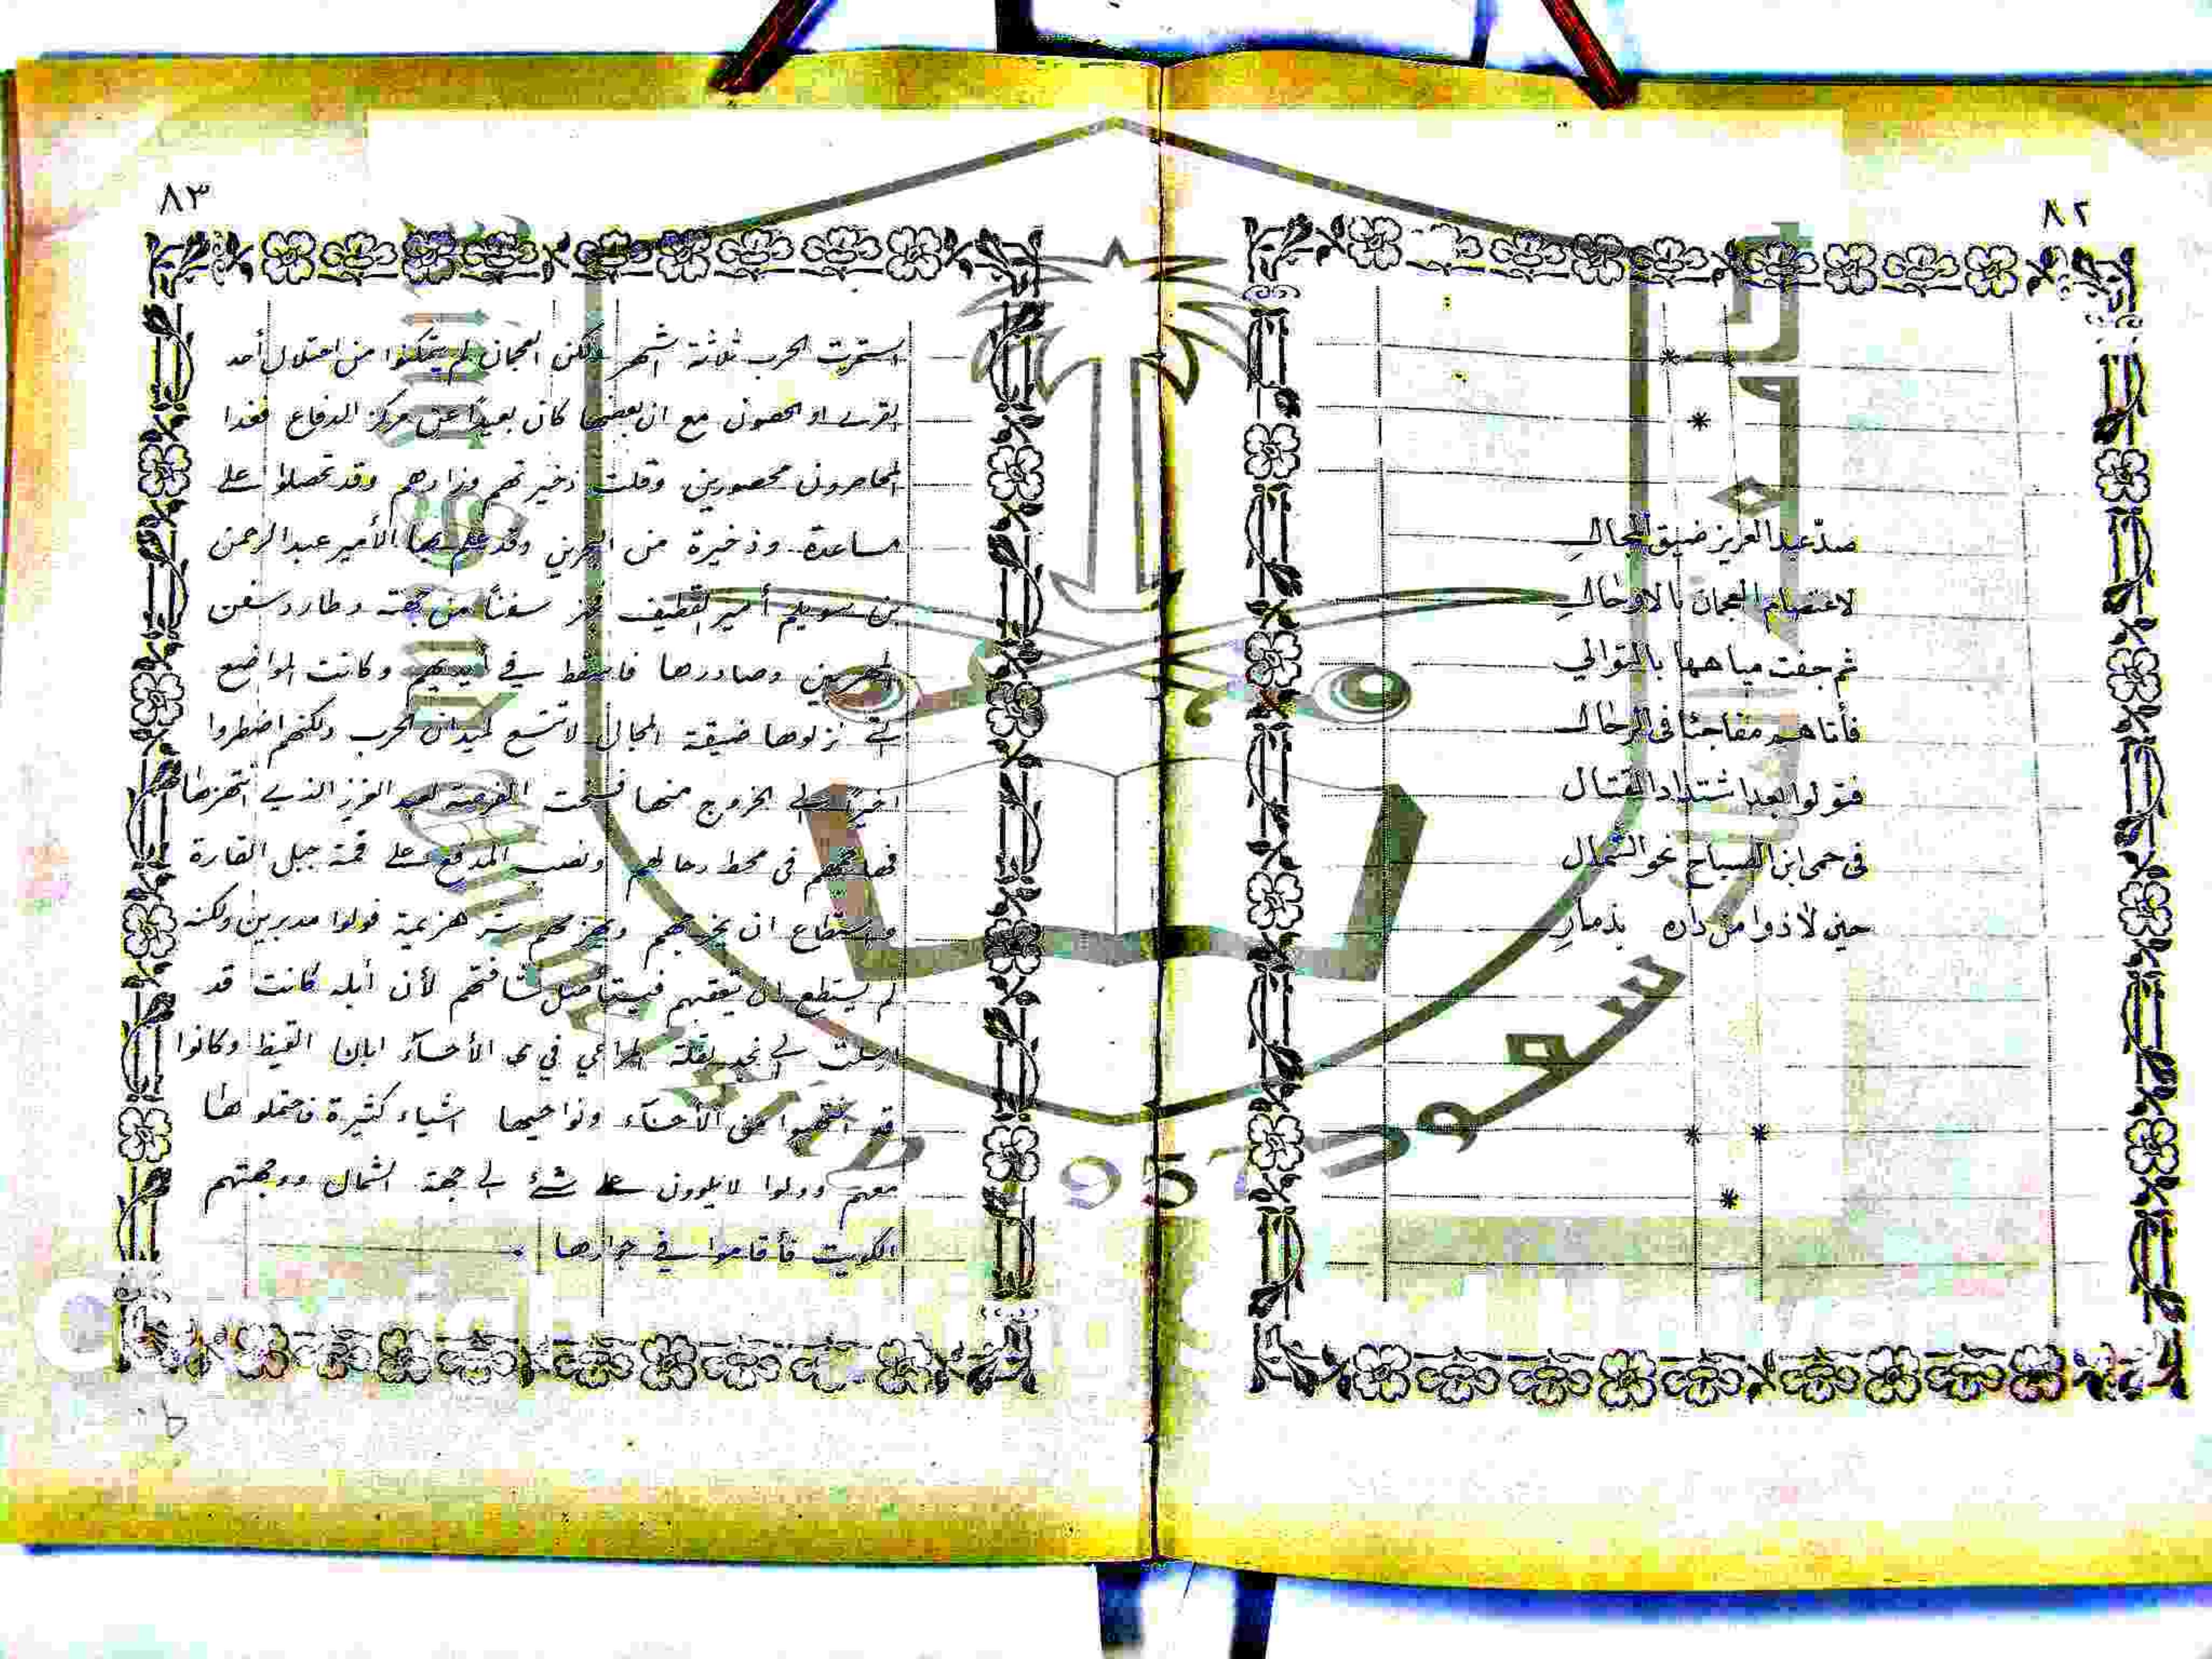 ٨٢
صدّ عبد العزيز ضيق المجالِ
لاعتصام العجمان بالاوحالِ
ثم جفت مياهها بالتوالي
فأتاهم مفاجئا في الرحالِ
فتولوا بعد اشتداد القتال
في حمى ابن الصباح نحو الشمال
حين لاذوا من داره بذمارِ
٨٣
استمرت الحرب ثلاثة اشهر ولكن العجمان لم يتمكنوا من احتلال أحد
القرى او الحصون مع ان بعضها كان بعيداً عن مركز الدفاع فغدا
المحاصرون محصورين وقلت ذخيرتهم وزادهم وقد تحصلوا على
مساعدة وذخيرة من البحرين وقد علم بها الأمير عبد الرحمن
بن سويلم أمير القطيف فجهز سفناً من جهته وطارد سفن
البحرين وصادرها فاسقط في أيديهم وكانت المواضع
التي نزلوها ضيقة المجال لا تتسع لميدان الحرب ولكنهم اضطروا
اخيراً الى الخروج منها فسنحت الفرصة لعبد العزيز الذي انتهزها
فهاجمهم في محط رحالهم ونصب المدفع على قمة جبل القارة
واستطاع ان يخرجهم ويهزمهم شر هزيمة فولوا مدبرين ولكنه
لم يستطع ان يتعقبهم فيستأصل شأفتهم لأن أبله كانت قد
ارسلت الى نجد لقلة المراعي في الأحساء ابان القيظ وكانوا
قد انتهبوا من الأحساء ونواحيها اشياء كثيرة فاحتملوها
معهم وولوا لا يلوون على شئ الى جهة الشمال ووجهتهم
الكويت فأقاموا في جوارها .
سعود
1957